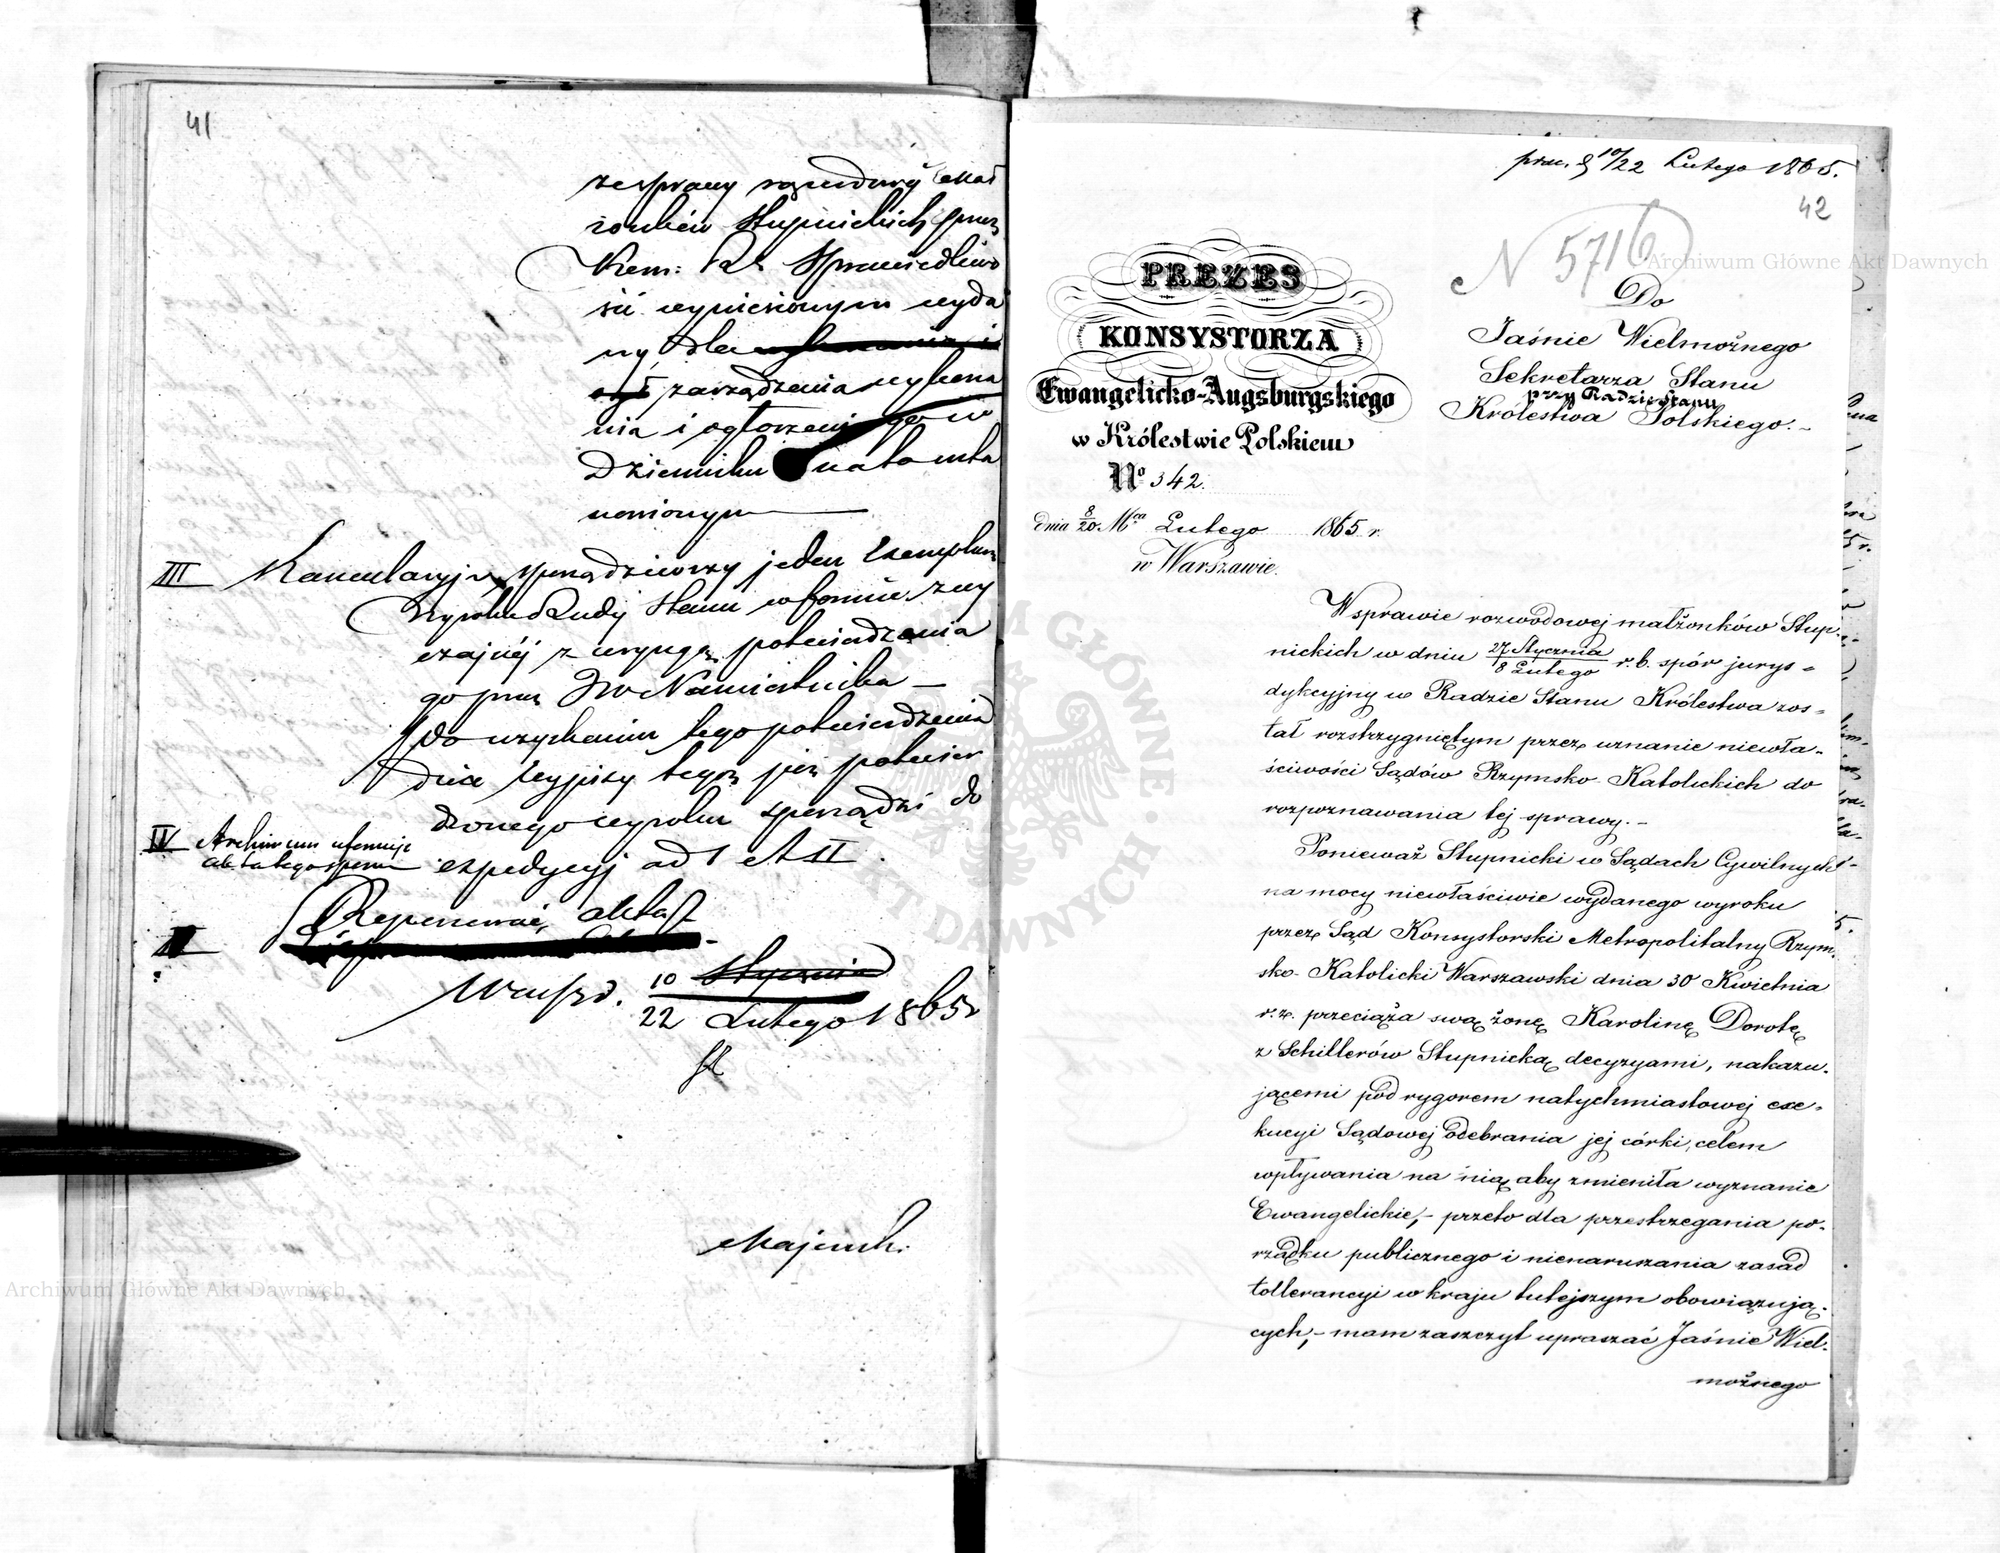 41
ze sprawy rozwodowej Mał
żonków Słupnickich przez
Kom: Rz. Sprawiedliwo
ści wyniesionym wyda
ny, dla
zarządzenia wykona
nia i ogłoszenia go w
Dzienniku
nionym
III Kancellaryja sporządziwszy jeden Exemplarz
Wyroku Rady Stanu w formie zwy
czajnej z wymogą potwierdzenia
go przez JW Namiestnika —
po uzyskaniu tego potwierdzenia
dwa wypisy tegoż już potwier
dzonego wyroku sporządzi do
expedycyj ad I et II.
IV Archiwum
akta tego sporu
Reponować akta
Warsz. d. 10 Stycznia
22 Lutego 1865 r
Majewski
prez. d 10/22 Lutego 1865.
42
N 5716
PREZES
KONSYSTORZA
Ewangelicko-Augsburgskiego
w Królestwie Polskiem
No 342.
dnia 8/20 Mca Lutego 1865 r.
w Warszawie.
Do
Jaśnie Wielmożnego
Sekretarza Stanu
przy Radzie Stanu
Królestwa Polskiego.-
W sprawie rozwodowej małżonków Słup-
nickich w dniu 27 Stycznia / 8 Lutego r. b. spór jurys=
dykcyjny w Radzie Stanu Królestwa zos=
tał rozstrzygniętym przez uznanie niewła-
ściwości Sądów Rzymsko-Katolickich do
rozpoznawania tej sprawy.-
Ponieważ Słupnicki w Sądach Cywilnych-
na mocy niewłaściwie wydanego wyroku
przez Sąd Konsystorski Metropolitalny Rzym-
sko-Katolicki Warszawski dnia 30 Kwietnia
r. z. przeciąża swą żonę Karolinę Dorotę
z Schillerów Słupnicką decyzyami, nakazu-
jącemi pod rygorem natychmiastowej exe-
kucyi Sądowej odebrania jej córki, celem
wpływania na nią aby zmieniła wyznanie
Ewangelickie,- przeto dla przestrzegania po-
rządku publicznego i nienaruszania zasad
tollerancyi w kraju tutejszym obowiązują-
cych,- mam zaszczyt upraszać Jaśnie Wiel-
możnego
Archiwum Główne Akt Dawnych
Archiwum Główne Akt Dawnych